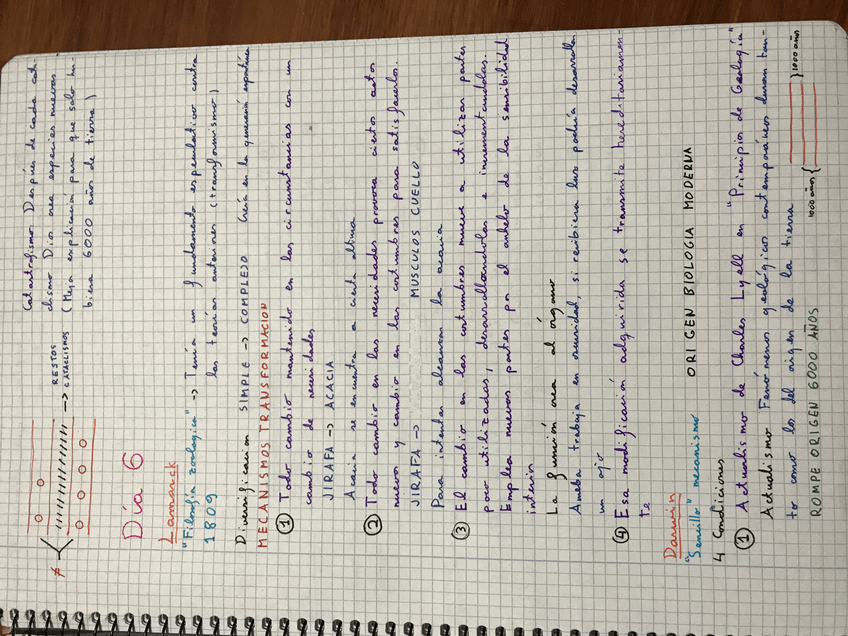 Catastrofismo Después de cada cata-
clismo Dios crea especies nuevas
(Mejor explicación para que solo hu-
biera 6000 años de tierra)
RESTOS
→ CATACLISMOS
≠
Día 6
Lamarck
"Filosofía zoologica" → Tenía un fundamento especulativo contra
1809 las teorías anteriores (transformismo)
Diversificacion SIMPLE → COMPLEJO Creía en la generación espontánea
MECANISMOS TRANSFORMACION
① Todo cambio mantenido en las circunstancias con un
cambio de necesidades
JIRAFA → ACACIA
Acacia se encuentra a cierta altura
② Todo cambio en las necesidades provoca ciertos actos
nuevos y cambio en las costumbres para satisfacerlos.
JIRAFA → MUSCULOS CUELLO
Para intentar alcanzar la acacia
③ El cambio en las costumbres mueve a utilizar partes
poco utilizadas, desarrollandolas e incrementandolas.
Emplea nuevas partes por el anhelo de la sensibilidad
interior
La función crea al órgano
Ameba trabaja en oscuridad, si recibiera luz podría desarrollar
un ojo
④ Esa modificación adquirida se transmite hereditariamen-
te
Darwin
"Sencillo" mecanismo ORIGEN BIOLOGIA MODERNA
4 Condiciones
① Actualismo de Charles Lyell en "Principios de Geología"
Actualismo Fenómenos geológicos contemporáneos duran tan-
to como los del origen de la tierra
ROMPE ORIGEN 6000 AÑOS 1000 años { } 1000 años